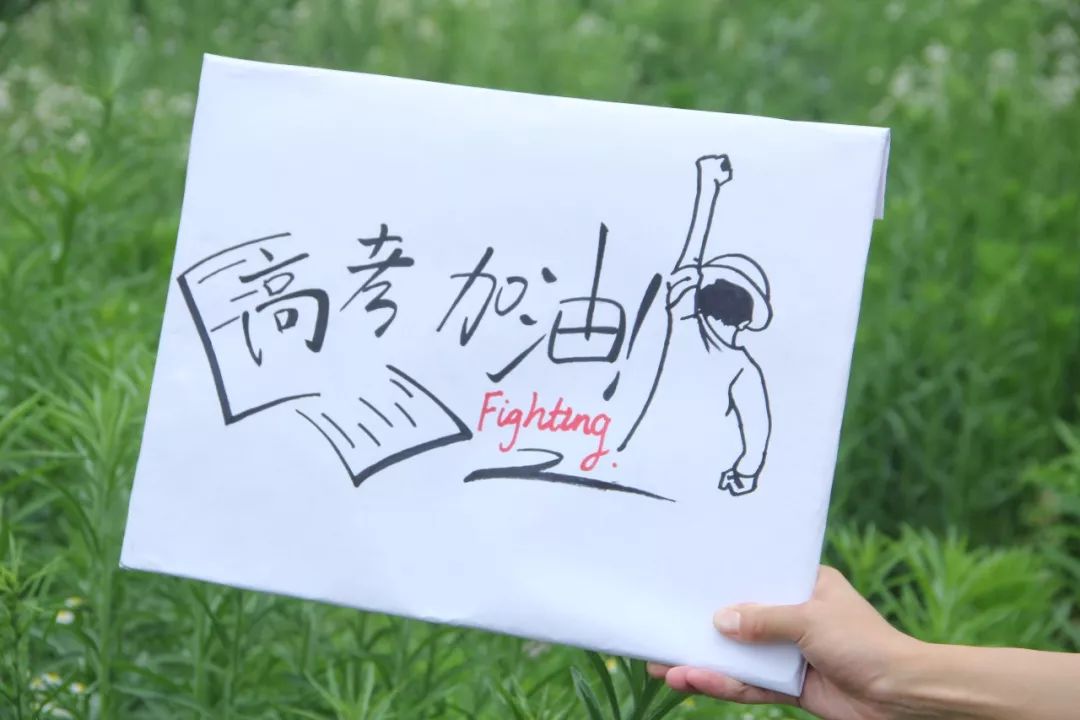 高考加油!
Fighting.